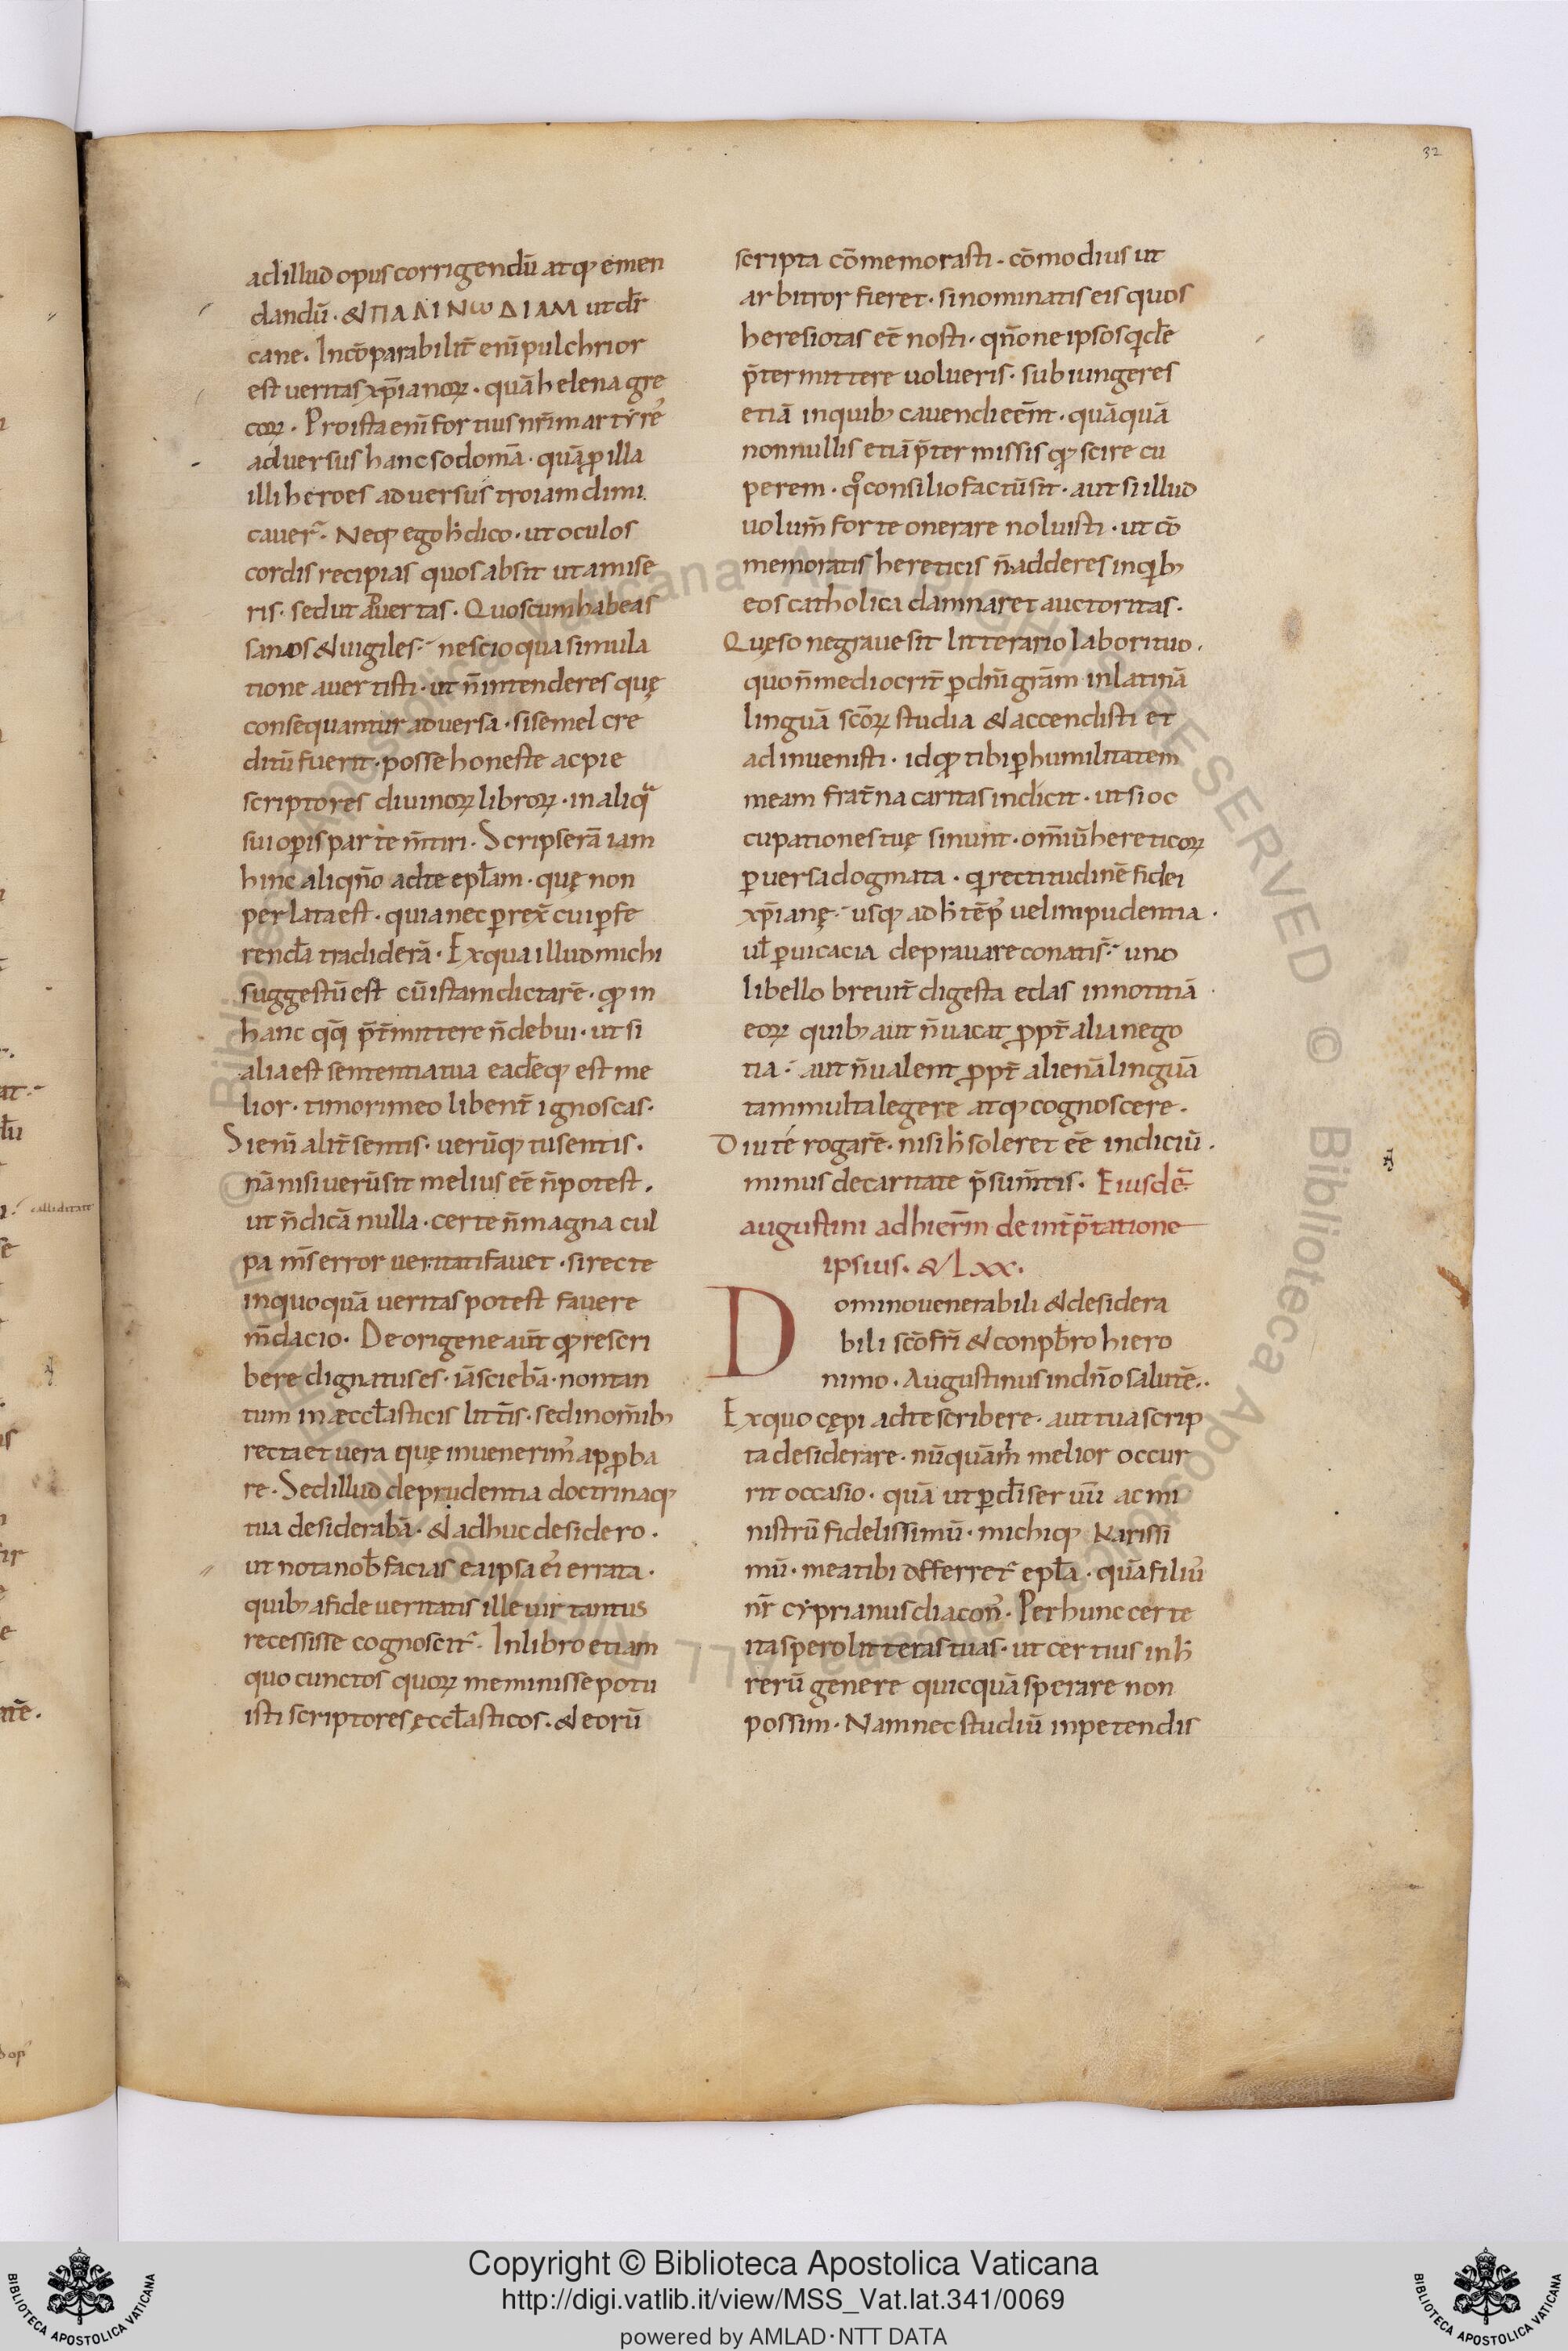 32
ad illud opus corrigendū atq; emen
dandū · & ΠΑΛΙΝωΔΙΑΜ ut dr̄
cane. Incōparabilit̄ eni͞ pulchrior
est ueritas xp̄ianoꝝ · quā helena gre
coꝝ · Pro ista eni͞ fortius nr̄i martyre᷒
aduersus hanc sodomā · quā ꝓ illa
illi heroes aduersus troiam dimi
cauer̄ · Neq; ego h̄ dico · ut oculos
cordis recipias quos absit ut amise
ris · sed ut aduertas · Quos cum habeas
sanos & uigiles · nescio qua simula
tione auertisti · ut n̄ intenderes quę
consequantur aduersa · si semel cre
ditū fuerit · posse honeste ac pie
scriptores diuinoꝝ libroꝝ · in aliqͣ
sui oꝑis parte m̄tiri · Scripserā iam
hinc aliqn̄o ad te epl̄am · quę non
perlata est · quia nec ꝑrex̄ cui ꝑfe
rendā tradiderā · Ex qua illud michi
suggestū est cū istam dictarē · qđ in
hanc qq̄ p̄t̄mittere n̄ debui · ut si
alia est sententia tua eadēq; est me
lior · timori meo libent̄ ignoscas ·
Si eni͞ alit̄ sentis · uerūq; tu sentis ·
nā nisi uerū sit melius eē n̄ potest .
ut n̄ dicā nulla · certe n̄ magna cul
pa m̄s error ueritati fauet · si recte
in quoquā ueritas potest fauere
m̄dacio · De origene aut̄ qđ rescri
bere dignatus es · iā sciebā · non tan
tum in æccl̄asticis litt̄is · sed in om̄ib;
recta et uera quę inuenerim᷒ apꝓba
re · Sed illud de prudentia doctrinaq;
tua desiderabā · & adhuc desidero .
ut nota nob̄ facias ea ipsa ei᷒ errata ·
quib; a fide ueritatis ille uir tantus
recessisse cognoscit᷒ · In libro etiam
quo cunctos quoꝝ meminisse potu
isti scriptores ęccl̄asticos · & eorū
scripta cōmemorasti · cōmodius ut
arbitror fieret · si nominatis eis quos
heresiotas eē nosti · qn̄one ipsos qidē
p̄termittere uolueris · subiungeres
etiā in quib; cauendi eēnt · quāquā
nonnullis etiā p̄termissis qđ scire cu
perem · qͦ consilio factū sit · aut si illud
uolum̄ forte onerare noluisti · ut cō
memoratis hereticis n̄ adderes in qib;
eos catholica damnaret auctoritas ·
Quęso ne graue sit litterario labori tuo ·
quo n̄ mediocrit̄ ꝑ dn̄i gr̄am in latinā
linguā sc̄oꝝ studia & accendisti et
adinuenisti · id qđ tibi ꝑ humilitatem
meam frat̄na caritas indicit · ut si oc
cupationes tuę sinunt · om̄iū hereticoꝝ
ꝑuersa dogmata · qi rectitudinē fidei
xp̄ianę · usq; ad h̄ tēp᷒ uel impudentia ·
ul̄ ꝑuicacia deprauare conati s̄ · uno
libello breuit̄ digesta edas in notitiā ·
eoꝝ quib; aut n̄ uacat ꝓpt̄ alia nego
tia · aut n̄ ualent ꝓpt̄ alienā linguā
tam multa legere atq; cognoscere ·
Diu té rogarē · nisi h̄ soleret eē indiciū ·
minus de caritate p̄sum̄tis · Eiusdē
augustini ad hierm̄ de int̄p̄tatione
ipsius · & Lxx ·
Domino uenerabili & desidera
bili sc̄o fr̄i & conpb̄ro hiero
nimo · Augustinus in dn̄o salutē ··
Ex quo cępi ad te scribere · aut tua scrip
ta desiderare · nūquā m̄ melior occur
rit occasio · quā ut ꝑ dī seruū ac mi
nistrū fidelissimū · michiq; Karissi
mū · mea tibi offerret᷒ epl̄a · quā filiu᷒
nr̄ cyprianus diacon᷒ · Per hunc certe
ita spero litteras tuas · ut certius in h̄
rerū genere quicquā sperare non
possim · Nam nec studiū in petendis
Copyright © Biblioteca Apostolica Vaticana
http://digi.vatlib.it/view/MSS_Vat.lat.341/0069
powered by AMLAD·NTT DATA